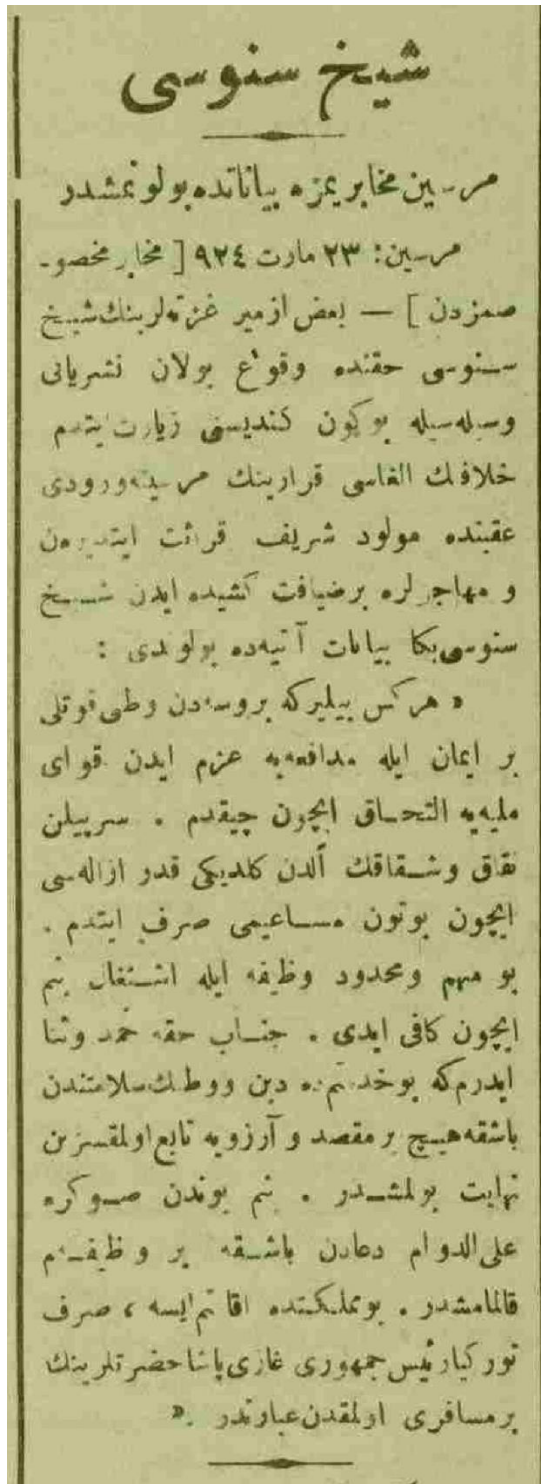 شیخ سنوسی
مرسین مخابریمزه بیاناتده بولونمشدر
مرسین: ٢٣ مارت ٩٢٤ [ مخابر مخصو-
صمزدن ] — بعض ازمیر غزته‌لرینك شیخ
سنوسی حقنده وقوع بولان نشریاتی
وسیله‌سیله بوکون کندیسنی زیارت ایتدم
خلافتك الغاسی قرارینك مرسینه ورودی
عقبنده مولود شریف قرائت ایتدیرەن
و مهاجرلره برضیافت کشیده ایدن شیخ
سنوسی بکا بیانات آتیه‌ده بولوندی :
« هرکس بیلیرکه بروسه‌دن وطنی قوتلی
بر ایمان ایله مدافعه‌یه عزم ایدن قوای
ملیه‌یه التحاق ایچون چیقدم . سرپیلن
نفاق وشقاقك ألدن کلدیکی قدر ازاله‌سی
ایچون بوتون مساعیمی صرف ایتدم .
بو مهم ومحدود وظیفه ایله اشتغال بنم
ایچون کافی ایدی . جناب حقه حمد وثنا
ایدرم‌که بوخدمتم‌ده دین ووطنك سلامتندن
باشقه هیچ برمقصد و آرزویه تابع اولمقسزین
نهایت بولمشدر . بنم بوندن صوکره
علی‌الدوام دعادن باشقه بر وظیفه‌م
قالمامشدر . بومملکتده اقامتم ایسه ، صرف
تورکیا رئیس جمهوری غازی پاشا حضرتلرینك
برمسافری اولمقدن عبارتدر .»